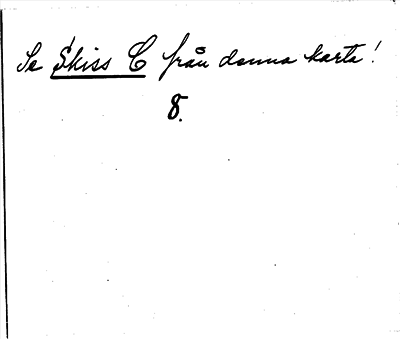 Se Skiss C från denna karta!
8.